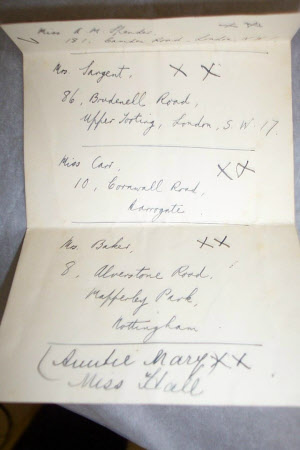 Miss A. M.
181, Camden Road, London, N.
Mrs Sargent, X X
86, Brudenell Road,
Upper Tooting, London, S.W.17.
Miss Carr, X X
10, Cornwall Road,
Harrogate.
Mrs. Baker, X X
8, Alverstone Road,
Mapperley Park,
Nottingham.
(Auntie Mary X X
Miss Hall